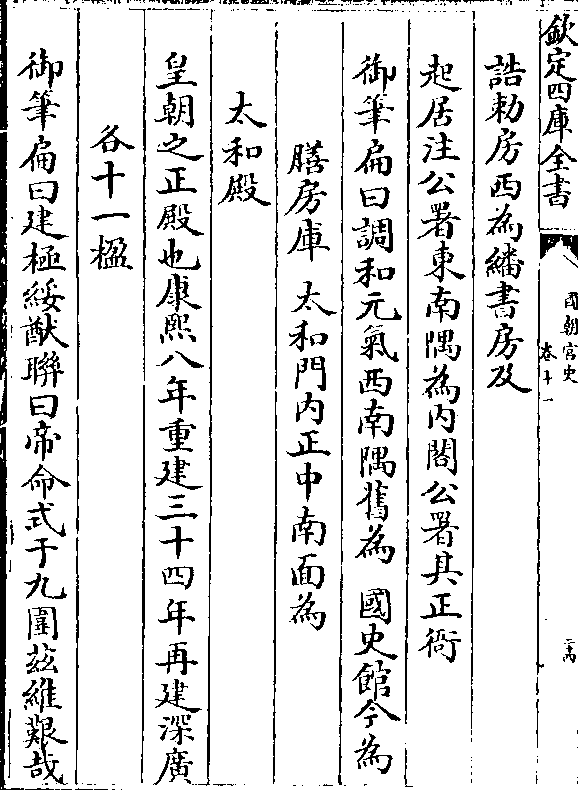 欽定四庫全書
國朝宮史
卷十一
誥勅房西為繙書房及
起居注公署東南隅為内閣公署其正衙
御筆扁曰調和元氣西南隅舊為　國史館今為
膳房庫　太和門内正中南面為
太和殿
皇朝之正殿也康熙八年重建三十四年再建深廣
各十一楹
御筆扁曰建極綏猷聯曰帝命式于九圍兹維艱哉